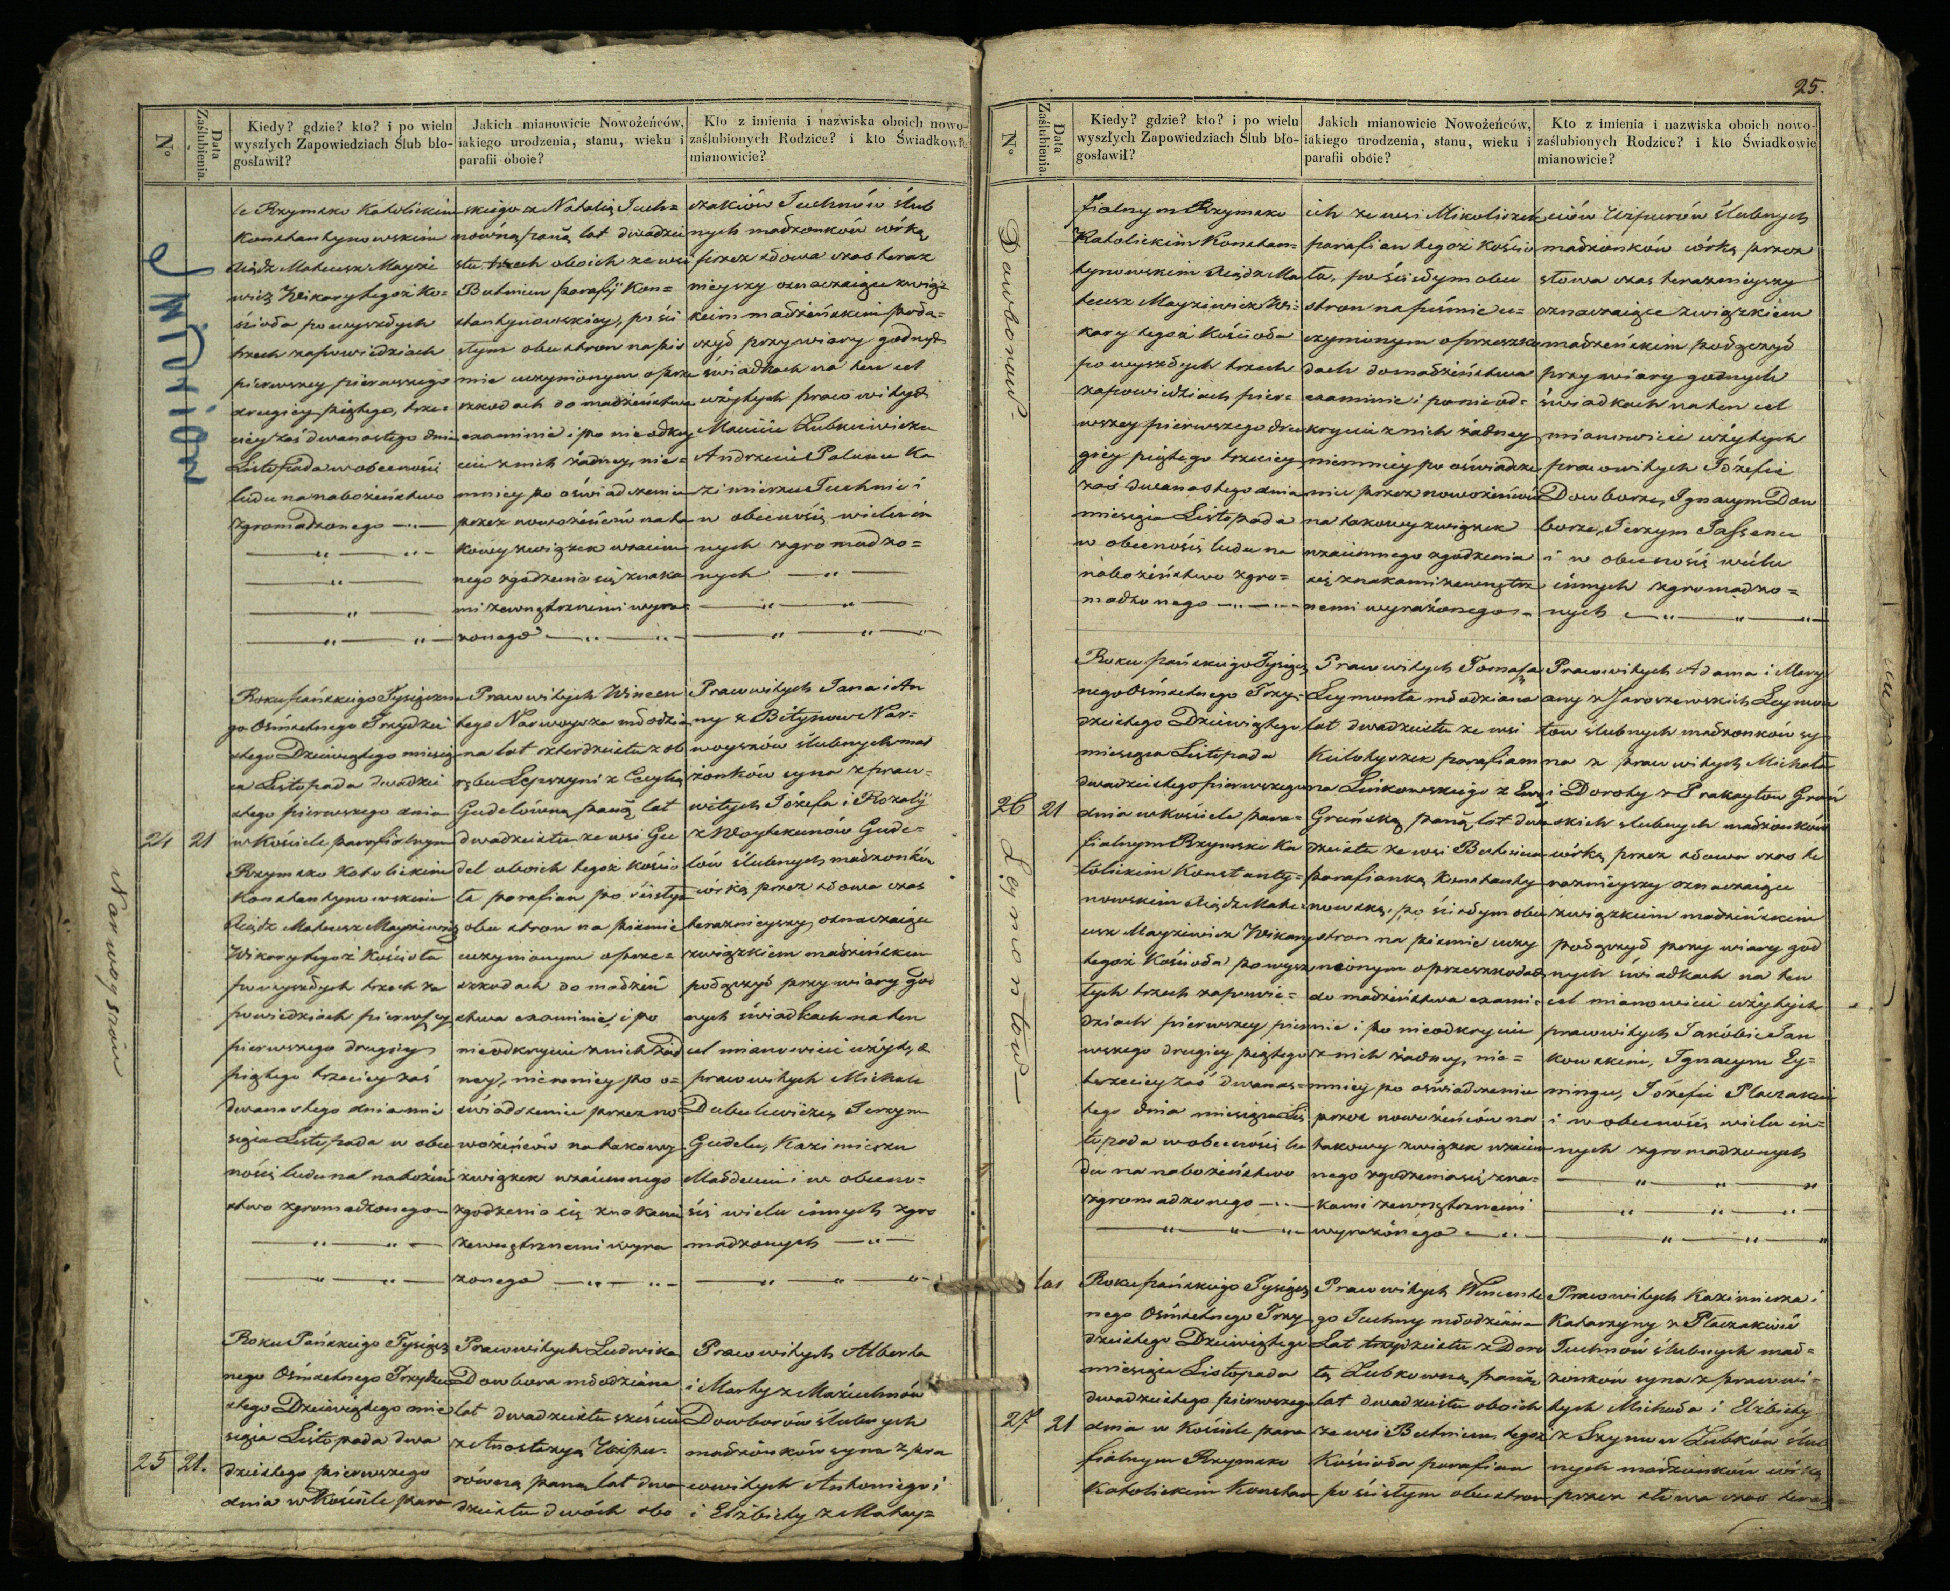 25.
N°
Data Zaślubienia.
Kiedy? gdzie? kto? i po wielu
wyszłych Zapowiedziach Ślub bło-
gosławił?
Jakich mianowicie Nowożeńców,
iakiego urodzenia, stanu, wieku i
parafii oboie?
Kto z imienia i nazwiska oboich nowo-
zaślubionych Rodzice? i kto Świadkowie
mianowicie?
le Rzymsko Katolickim
Konstantynowskim
Xiądz Mateusz Mayzie
wicz Wikary tegoż Ko-
ścioła po wyszłych
trzech zapowiedziach
pierwszey pierwszego
drugiey piątego, trze-
ciey zaś dwanastego dnia
Listopada w obecności
ludu na nabożeństwo
zgromadzonego
skiego z Natalią Tuch=
nowną panną lat dwadzie
stu trzech oboich ze wsi
Butniun parafij Kon=
stantynowskiey, po ści
słym obu stron na piś
mie uczynionym o prze
szkodach do małżeństwa
examinie i po nieodkry
ciu z nich żadney, nie=
mniey po oświadczeniu
przez nowożeńców na ta
kowy związek wzaiem
nego zgodzenia się znaka
mi zewnętrznemi wyra=
żonego
szaków Tuchnów ślub
nych małżonków córką
przez słowa czas teraz
nieyszy oznaczaiące związ
kiem małżeńskim połą=
czył przy wiary godnych
świadkach na ten cel
użytych pracowitych
Macieiu Lubkiewiczu
Andrzeiu Palunu Ka
zimierzu Tuchnie i
w obecności wielu in
nych zgromadzo=
nych
24
21
Narwoyszów
Roku Pańskiego Tysiączne
go Ośmsetnego Trzydzie
stego Dziewiątego miesią
ca Listopada dwadzie
stego pierwszego dnia
w Kościele parafialnym
Rzymsko Katolickim
Konstantynowskim
Xiądz Mateusz Mayziewicz
Wikary tegoż Kościoła
po wyszłych trzech za
powiedziach pierwszey
pierwszego drugiey
piątego trzeciey zaś
dwanastego dnia mie
siąca Listopada w obec
ności ludu na nabożeń
stwo zgromadzonego
Pracowitych Wincen
tego Narwoysza młodzia
na lat czterdziestu z ob
rębu Leyszyni z Cecylią
Gudelówną panną lat
dwadziestu ze wsi Gu
del oboich tegoż Kościo
ła parafian po ścisłym
obu stron na piśmie
uczynionym o prze=
szkodach do małżeń
stwa examinie i po
nieodkryciu z nich żad
ney, niemniey po o=
świadczeniu przez no=
wożeńców na takowy
związek wzaiemnego
zgodzenia się znakami
zewnętrznemi wyra
żonego
Pracowitych Jana i An
ny z Bitynow Nar=
woyszów ślubnych mał
żonków syna z praco=
witych Józefa i Rozaly
z Woytekunów Gude=
lów ślubnych małżonków
córką przez słowa czas
teraznieyszy oznaczaiące
związkiem małżeńskim
połączył przy wiary god
nych świadkach na ten
cel mianowicie użytych
pracowitych Michale
Dubulewiczu, Jerzym
Gudelu, Kazimierzu
Małdunie i w obecno=
ści wielu innych zgro
madzonych
25
21.
Roku Pańskiego Tysiącz
nego Ośmsetnego Trzydzie
stego Dziewiątego mie
siąca Listopada dwa
dziestego pierwszego
dnia w Kościele para
Pracowitych Ludwika
Dowbora młodziana
lat dwadziestu sześciu
z Anastazyą Uzpu=
równą panną lat dwa
dziestu dwóch obo
Pracowitych Alberta
i Marty z Maziulunów
Dowborów ślubnych
małżonków syna z pra
cowitych Antoniego i
i Elżbiety z Matey=
Dowborow
fialnym Rzymsko
Katolickim Konstan=
tynowskim Xiądz Ma
teusz Mayziewicz Wi=
kary tegoż Kościoła
po wyszłych trzech
zapowiedziach pier=
wszey pierwszego dru
giey piątego trzeciey
zaś dwanastego dnia
miesiąca Listopada
w obecności ludu na
nabożeństwo zgro=
madzonego
ich ze wsi Mikoliszek
parafian tegoż Kościo
ła, po ścisłym obu
stron na piśmie u=
czynionym o przeszko
dach do małżeństwa
examinie i po nieod=
kryciu z nich żadney
niemniey po oświadcze
niu przez nowożeńców
na takowy związek
wzaiemnego zgodzenia
się znakami zewnętrz
nemi wyrażonego
ciów Uzpurów ślubnych
małżonków córką przez
słowa czas teraznieyszy
oznaczaiące związkiem
małżeńskim połączył
przy wiary godnych
świadkach na ten cel
mianowicie użytych
pracowitych Józefie
Dowborze, Ignacym Dow
borze, Jerzym Jassenu
i w obecności wielu
innych zgromadzo=
nych
26
21
Leymontow
Roku Pańskiego Tysiącz
nego Ośmsetnego Trzy=
dziestego Dziewiątego
miesiąca Listopada
dwadziestego pierwszego
dnia w Kościele para=
fialnym Rzymsko Ka
tolickim Konstanty=
nowskim Xiądz Mate
usz Mayziewicz Wikary
tegoż Kościoła po wysz
łych trzech zapowie=
dziach pierwszey pier
wszego drugiey piątego
trzeciey zaś dwanas=
tego dnia miesiąca Lis
topada w obecności lu
du na nabożeństwo
zgromadzonego
Pracowitych Tomasza
Leymonta młodziana
lat dwadziestu ze wsi
Kulotyszek parafiani
na Linkowskiego z Ewą
Gruńską panną lat dwa
dziestu ze wsi Butniun
parafianką Konstanty
nowską, po ścisłym obu
stron na piśmie uczy
nionym o przeszkodach
do małżeństwa exami=
nie i po nieodkryciu
z nich żadney, nie=
mniey po oświadczeniu
przez nowożeńców na
takowy związek wzaiem
nego zgodzenia się zna=
kami zewnętrznemi
wyrażonego
Pracowitych Adama i Mary
any z Jaroszewskich Leymon
tów ślubnych małżonków sy=
na z pracowitych Michała
i Doroty z Prakaytow Gruń
skich ślubnych małżonków
córką przez słowa czas te
raznieyszy oznaczaiące
związkiem małżeńskim
połączył przy wiary god
nych świadkach na ten
cel mianowicie użytych
pracowitych Jakóbie Jan
kowskim, Ignacym Ey=
ningu, Józefie Placzaku
i w obecności wielu in=
nych zgromadzonych
27
21
Roku Pańskiego Tysiącz
nego Ośmsetnego Trzy
dziestego Dziewiątego
miesiąca Listopada
dwadziestego pierwszego
dnia w Kościele para
fialnym Rzymsko
Katolickim Konstan
Pracowitych Wincente
go Tuchny młodziana
Lat trzydziestu z Doro
tą Lubkowną panną
lat dwadziestu oboich
ze wsi Butniun tegoż
Kościoła parafian
po ścisłym obu stron
Pracowitych Kazimierza i
Katarzyny z Placzaków
Tuchnów ślubnych mał=
żonków syna z pracowi=
tych Michała i Elżbiety
z Szymow Lubków ślub
nych małżonków córką
przez słowa czas tera=